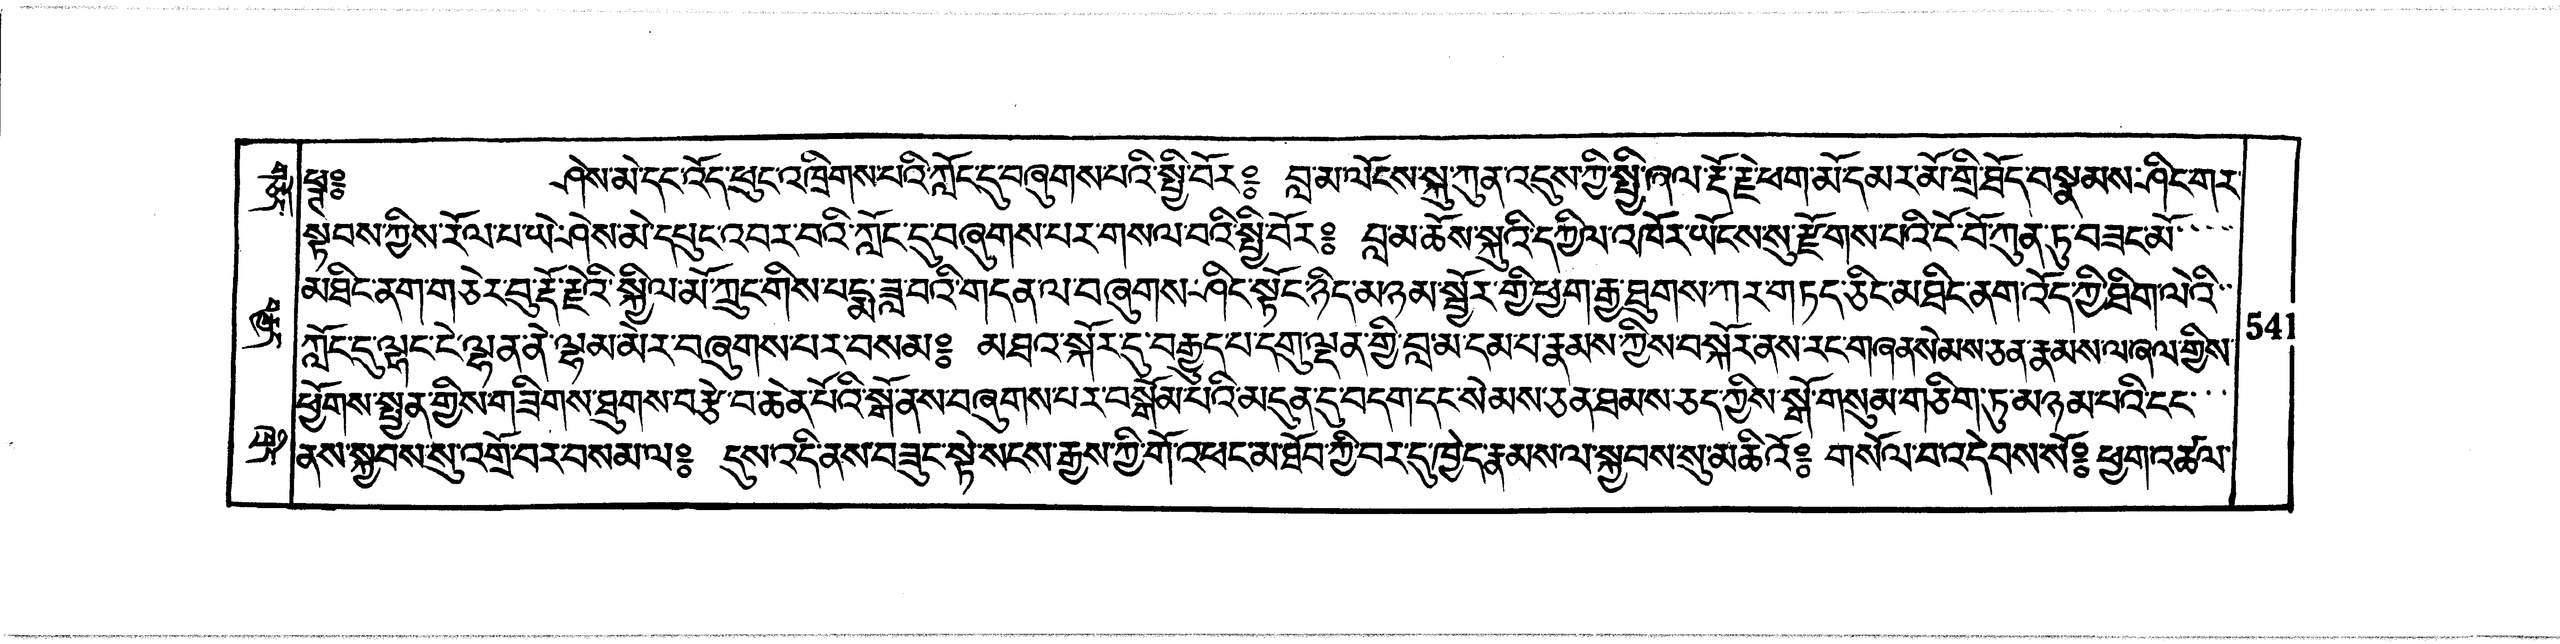 ༄༅༔ ཤེས་མེ་དང་འོད་ཕུང་འཁྲིགས་པའི་ཀློང་དུ་བཞུགས་པའི་སྤྱི་བོར༔ བླ་མ་ལོངས་སྐུ་ཀུན་འདུས་ཀྱི་སྤྱི་ཞལ་རྡོ་རྗེ་ཕག་མོ་དམར་མོ་གྲི་ཐོད་བསྣམས་ཤིང་གར་
སྟབས་ཀྱིས་རོལ་པ་ཡེ་ཤེས་མེ་དཔུང་འབར་བའི་ཀློང་དུ་བཞུགས་པར་གསལ་བའི་སྤྱི་བོར༔ བླ་མ་ཆོས་སྐུའི་དཀྱིལ་འཁོར་ཡོངས་སུ་རྫོགས་པའི་ངོ་བོ་ཀུན་ཏུ་བཟང་མོ་
མཐིང་ནག་གཅེར་བུ་རྡོ་རྗེའི་སྐྱིལ་མོ་ཀྲུང་གིས་པདྨ་ཟླ་བའི་གདན་ལ་བཞུགས་ཤིང་སྟོང་ཉིད་མཉམ་སྦྱོར་གྱི་ཕྱག་རྒྱ་ཐུགས་ཀར་གཏད་ཅིང་མཐིང་ནག་འོད་ཀྱི་ཐིག་ལེའི་
ཀློང་དུ་ལྷང་ངེ་ལྷན་ནེ་ལྷམ་མེར་བཞུགས་པར་བསམ༔ མཐའ་སྐོར་དུ་བརྒྱུད་པ་དགུ་ལྡན་གྱི་བླ་མ་དམ་པ་རྣམས་ཀྱིས་བསྐོར་ནས་རང་གཞན་སེམས་ཅན་རྣམས་ལ་ཞལ་གྱིས་
ཕྱོགས་སྤྱན་གྱིས་གཟིགས་ཐུགས་བརྩེ་བ་ཆེན་པོའི་སྒོ་ནས་བཞུགས་པར་བསྒོམ་པའི་མདུན་དུ་བདག་དང་སེམས་ཅན་ཐམས་ཅད་ཀྱིས་སྒོ་གསུམ་གཅིག་ཏུ་མཉམ་པའི་ངང་
ནས་སྐྱབས་སུ་འགྲོ་བར་བསམ་ལ༔ དུས་འདི་ནས་བཟུང་སྟེ་སངས་རྒྱས་ཀྱི་གོ་འཕང་མ་ཐོབ་ཀྱི་བར་དུ་ཁྱེད་རྣམས་ལ་སྐྱབས་སུ་མཆིའོ༔ གསོལ་བ་འདེབས་སོ༔ ཕྱག་འཚལ་
541